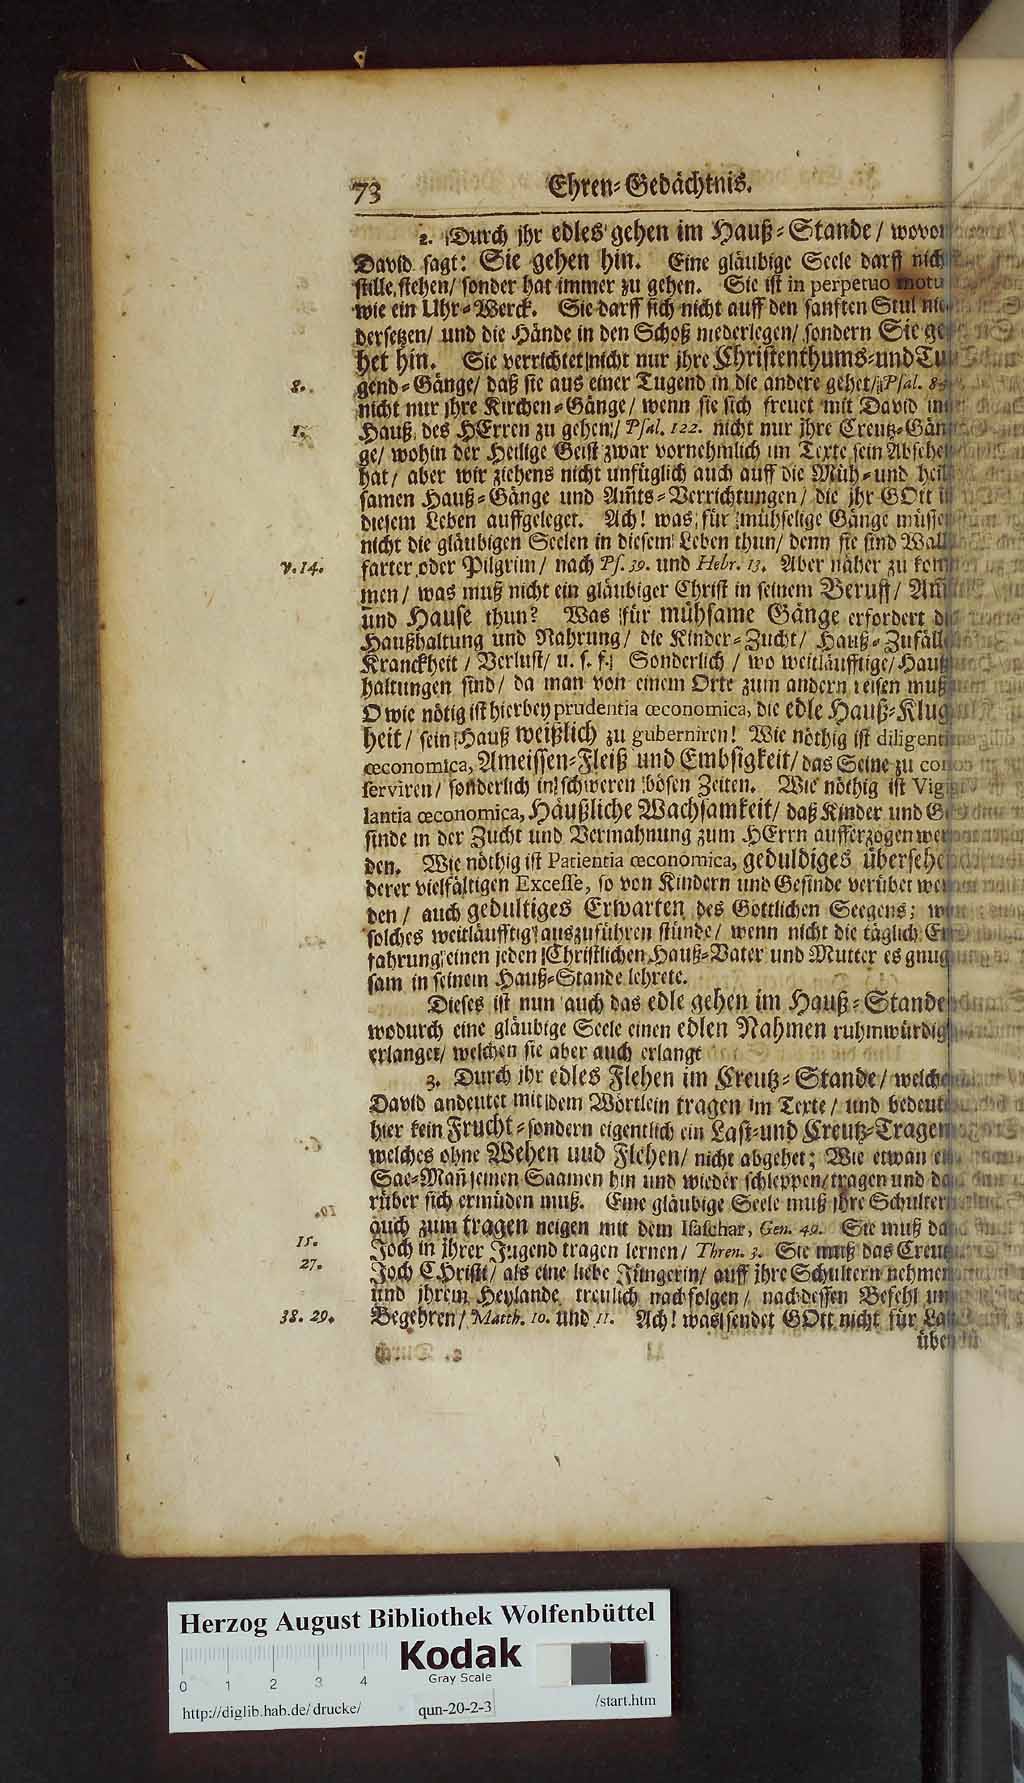 73 Ehren-Gedächtnis.
2. Durch jhr edles gehen im Hauß-Stande/ wovon
David sagt: Sie gehen hin. Eine gläubige Seele darff nich
stille stehen/ sonder hat immer zu gehen. Sie ist in perpetuo motu
wie ein Uhr-Werck. Sie darff sich nicht auff den sanften Stul nie-
dersetzen/ und die Hände in den Schoß niederlegen/ sondern Sie ge-
het hin. Sie verrichtet nicht nur jhre Christenthums-und Tu-
8. gend-Gänge/ daß sie aus einer Tugend in die andere gehet/ Psal. 84
nicht nur jhre Kirchen-Gänge/ wenn sie sich freuet mit David in
1. Hauß des HErren zu gehen/ Psal. 122. nicht nur jhre Creutz-Gän-
ge/ wohin der Heilige Geist zwar vornehmlich im Texte sein Absehe
hat/ aber wir ziehens nicht unfüglich auch auff die Müh-und heil
samen Hauß-Gänge und Am̃ts-Verrichtungen/ die jhr GOtt i
diesem Leben auffgeleget. Ach! was für mühselige Gänge müsse
nicht die gläubigen Seelen in diesem Leben thun/ denn sie sind Wall
v. 14. farter oder Pilgrim/ nach Ps. 39. und Hebr. 13. Aber näher zu kom
men/ was muß nicht ein gläubiger Christ in seinem Beruff/ Am̃
und Hause thun? Was für mühsame Gänge erfordert di
Haußhaltung und Nahrung/ die Kinder-Zucht/ Hauß-Zufälle
Kranckheit/ Verlust/ u. s. f. Sonderlich/ wo weitläufftige Hauß
haltungen sind/ da man von einem Orte zum andern reisen muß
O wie nötig ist hierbey prudentia œconomica, die edle Hauß-Klug
heit/ sein Hauß weißlich zu guberniren! Wie nöthig ist diligenti
œconomica, Ameissen-Fleiß und Embsigkeit/ das Seine zu con
serviren/ sonderlich in schweren bösen Zeiten. Wie nöthig ist Vigi
lantia œconomica, Häußliche Wachsamkeit/ daß Kinder und Ge
sinde in der Zucht und Vermahnung zum HErrn aufferzogen wer
den. Wie nöthig ist Patientia œconomica, geduldiges übersehe
derer vielfältigen Excesse, so von Kindern und Gesinde verübet wer
den/ auch gedultiges Erwarten des Göttlichen Seegens; w
solches weitläufftig auszuführen stünde/ wenn nicht die täglich Er
fahrung einen jeden Christlichen Hauß-Vater und Mutter es gnug
sam in seinem Hauß-Stande lehrete.
Dieses ist nun auch das edle gehen im Hauß-Stande
wodurch eine gläubige Seele einen edlen Nahmen ruhmwürdig
erlanget/ welchen sie aber auch erlangt
3. Durch jhr edles Flehen im Creutz-Stande/ welche
David andeutet mit dem Wörtlein tragen im Texte/ und bedeut
hier kein Frucht-sondern eigentlich ein Last-und Creutz-Tragen
welches ohne Wehen und Flehen/ nicht abgehet; Wie etwan ei
Sae-Mañ seinen Saamen hin und wieder schleppen/ tragen und da
rüber sich ermüden muß. Eine gläubige Seele muß jhre Schultern
auch zum tragen neigen mit dem Isaschar, Gen. 49. Sie muß da
15. Joch in jhrer Jugend tragen lernen/ Thren. 3. Sie muß das Creutz
27. Joch CHristi/ als eine liebe Jüngerin/ auff jhre Schultern nehmen
und jhrem Heylande treulich nachfolgen/ nach dessen Befehl un
38. 29. Begehren/ Matth. 10. und 11. Ach! was sendet GOtt nicht für La
üben
Herzog August Bibliothek Wolfenbüttel
Kodak
Gray Scale
0 1 2 3 4
http://diglib.hab.de/drucke/ qun-20-2-3 /start.htm